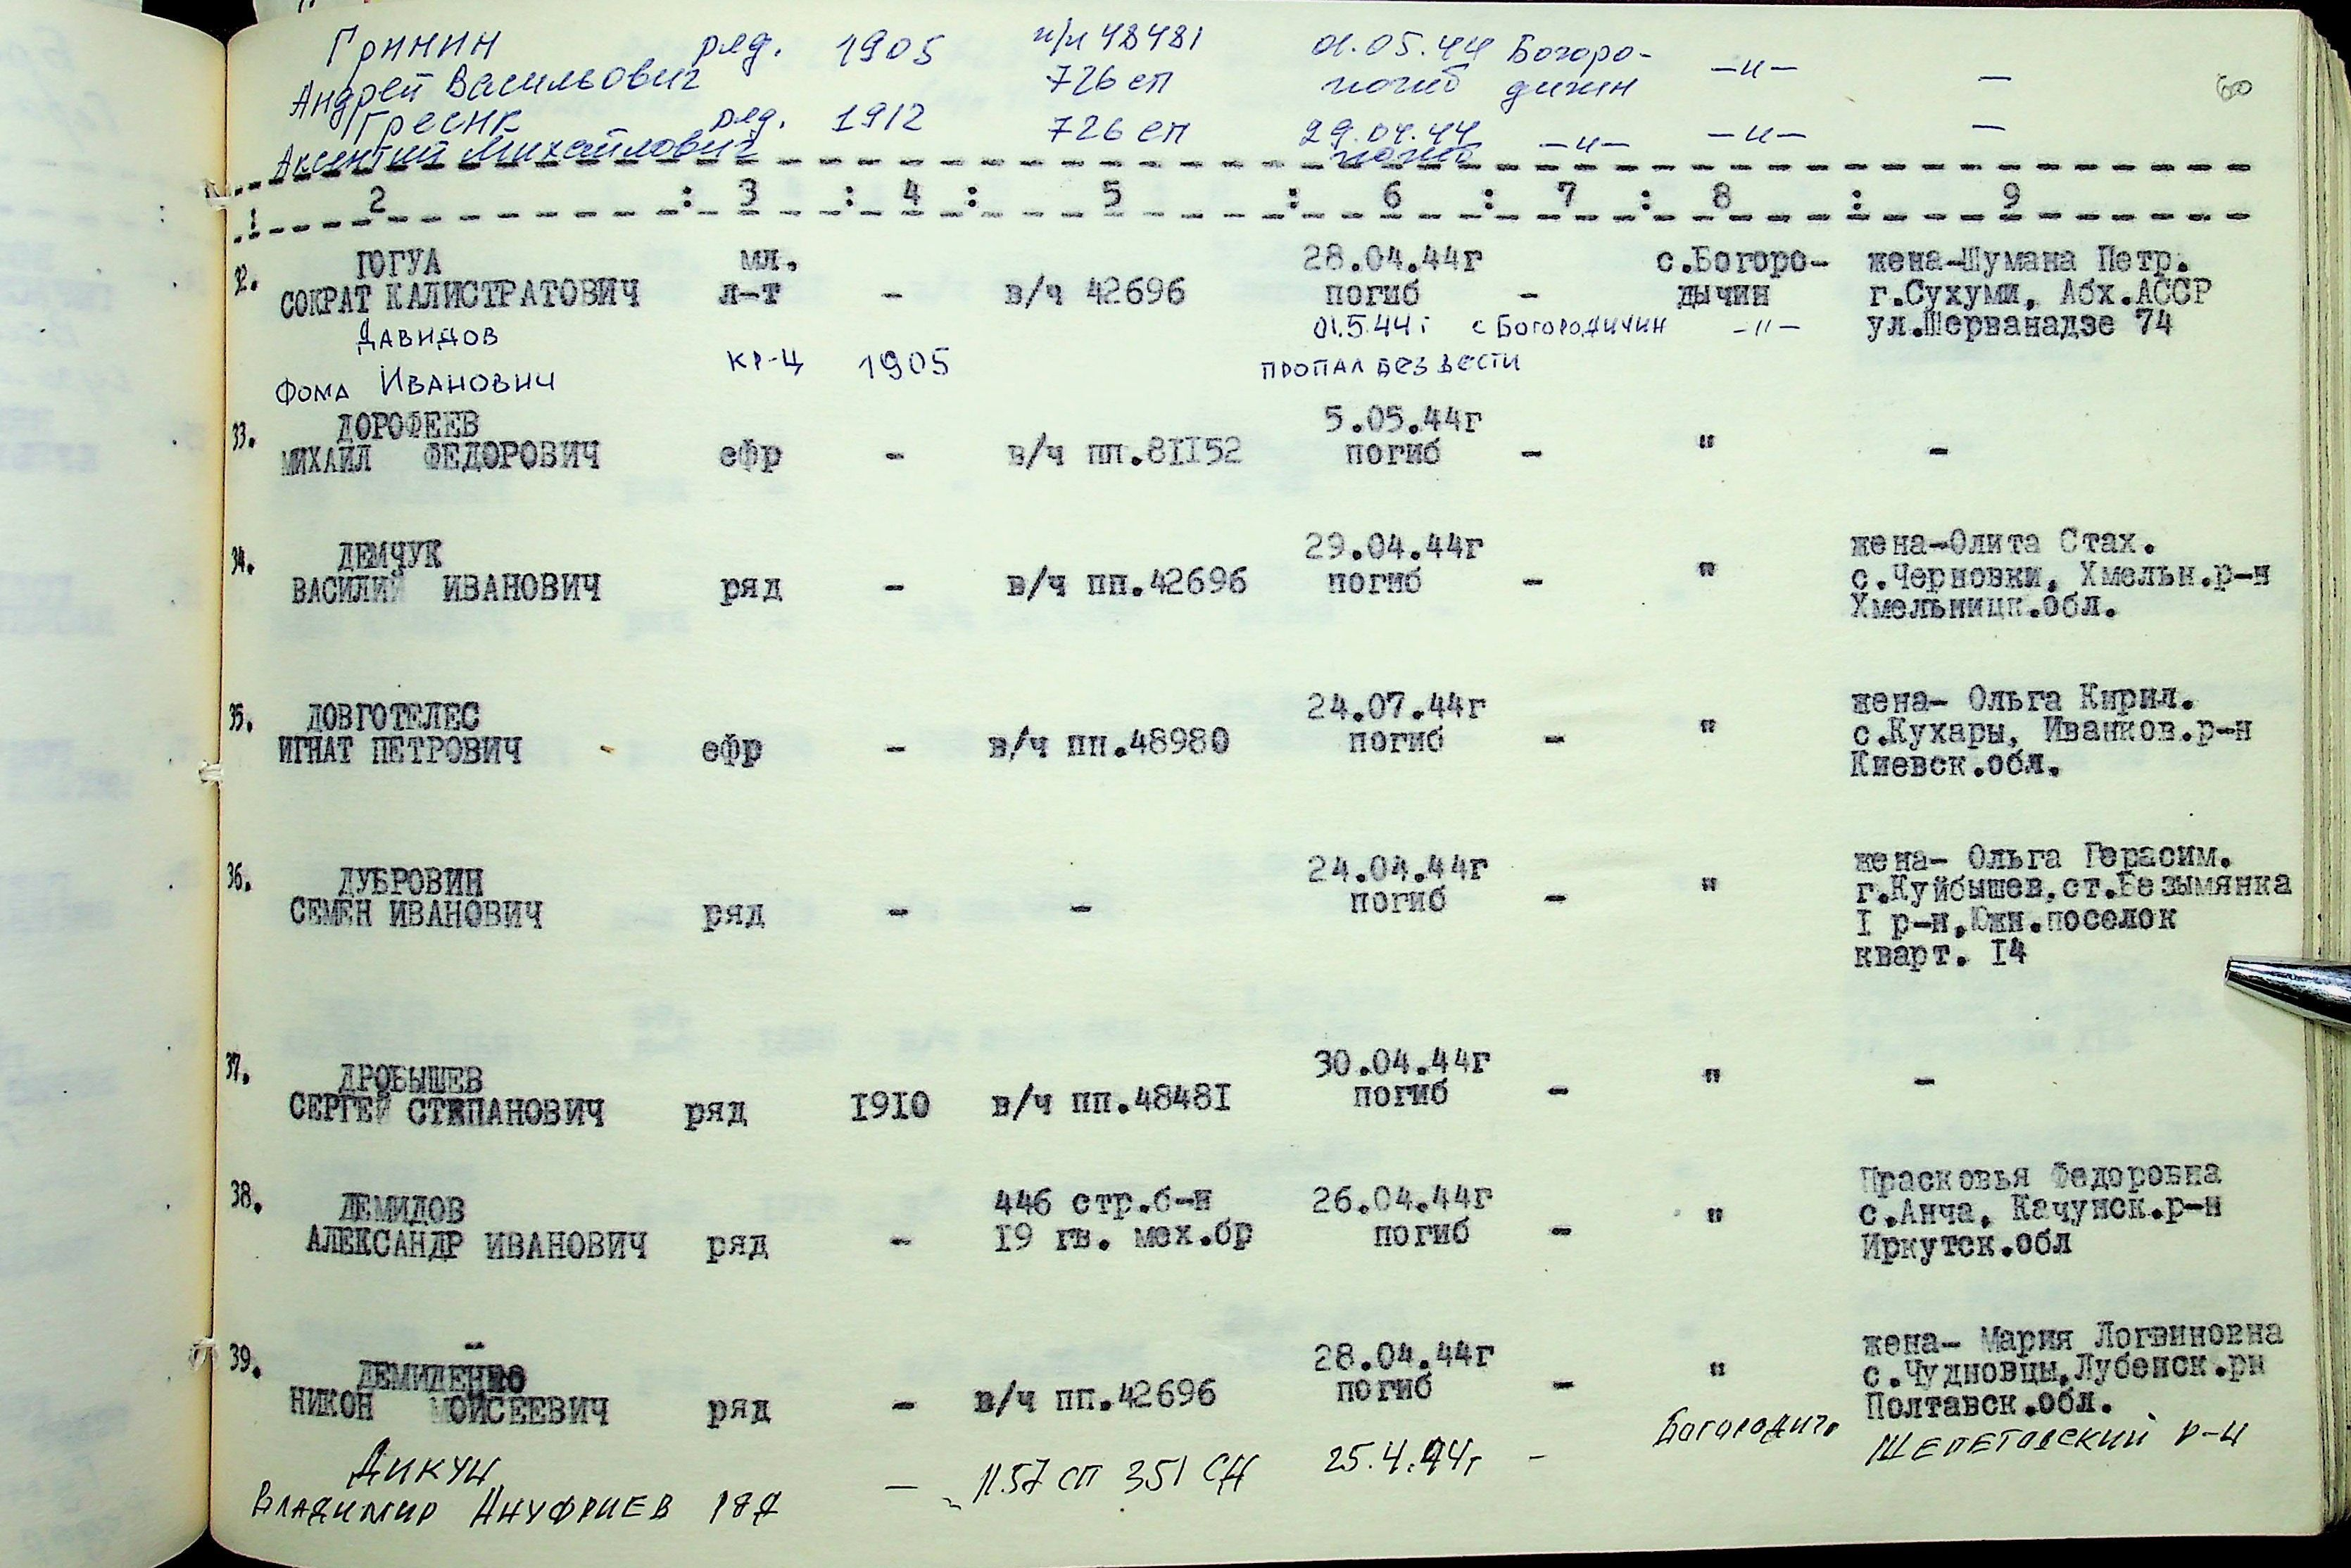 Гринин ряд. 1905 п/п 48481 01.05.44 Богоро- —"— —
Андрей Васильович 726 сп погиб дичин 60
Гресик ряд. 1912 726 сп 29.04.44 —"— —"— —
Аксентий Михайлович погиб
1 2 : 3 : 4 : 5 : 6 : 7 : 8 : 9
32. ГОГУА мл. 28.04.44г с.Богоро- жена-Шумана Петр.
СОКРАТ КАЛИСТРАТОВИЧ л-т - в/ч 42696 погиб - дычин г.Сухуми, Абх.АССР
Давидов 01.5.44г с Богородичин -"- ул.Шерванадзе 74
Фома Иванович кр-ц 1905 пропал без вести
33. ДОРОФЕЕВ 5.05.44г
МИХАИЛ ФЕДОРОВИЧ ефр - в/ч пп.8II52 погиб - " -
34. ДЕМЧУК 29.04.44г жена-Олита Стах.
ВАСИЛИЙ ИВАНОВИЧ ряд - в/ч пп.42696 погиб - " с.Черновки, Хмельн.р-н
Хмельницк.обл.
35. ДОВГОТЕЛЕС 24.07.44г жена- Ольга Кирил.
ИГНАТ ПЕТРОВИЧ ефр - в/ч пп.48980 погиб - " с.Кухары, Иванков.р-н
Киевск.обл.
36. ДУБРОВИН 24.04.44г жена- Ольга Герасим.
СЕМЕН ИВАНОВИЧ ряд - - погиб - " г.Куйбышев,ст.Безымянка
I р-н,Южн.поселок
кварт. I4
37. ДРОБЫШЕВ 30.04.44г
СЕРГЕЙ СТЕПАНОВИЧ ряд I9I0 в/ч пп.4848I погиб - " -
38. ДЕМИДОВ 446 стр.б-н 26.04.44г Прасковья Федоровна
АЛЕКСАНДР ИВАНОВИЧ ряд - I9 гв. мех.бр погиб - " с.Анча, Качунск.р-н
Иркутск.обл
39. ДЕМИДЕНКО 28.04.44г жена- Мария Логвиновна
НИКОН МОЙСЕЕВИЧ ряд - в/ч пп.42696 погиб - " с.Чудновцы,Лубенск.рн
Полтавск.обл.
Дикун — 1157 сп 351 СД 25.4.44г - Богородич. Шепетовский р-н
Владимир Ануфриев ряд